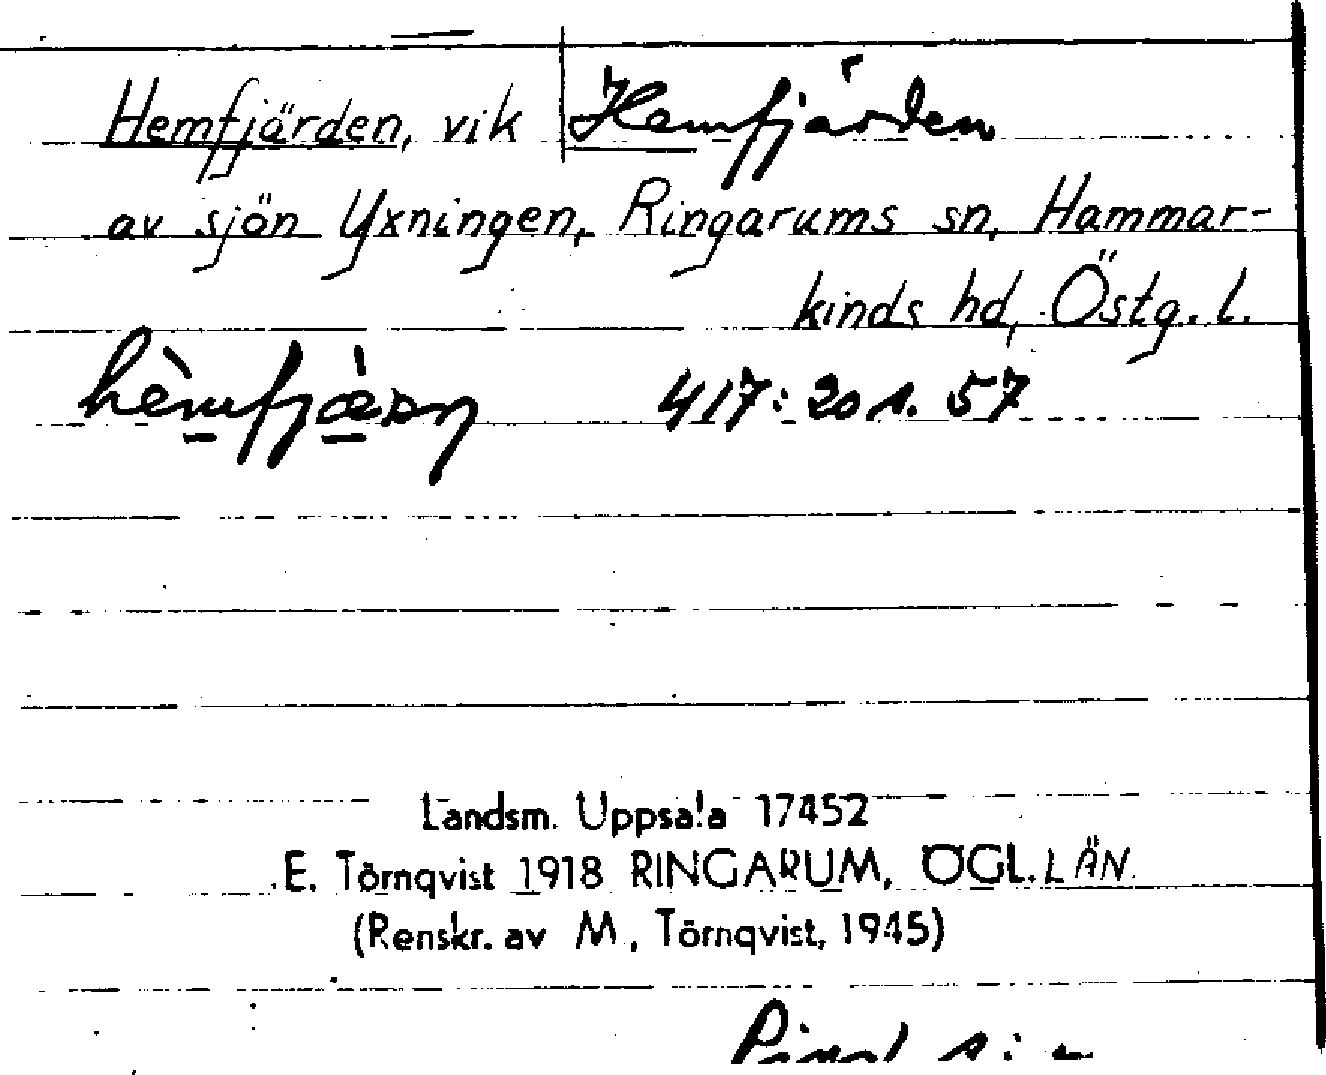 Hemfjärden, vik Hemfjärden
av sjön Yxningen, Ringarums sn, Hammar-
kinds hd, Östg. l.
417: 20 s. 57
Landsm. Uppsala 17452
E. Törnqvist 1918 RINGARUM, ÖGL. LÄN
(Renskr. av M. Törnqvist, 1945)